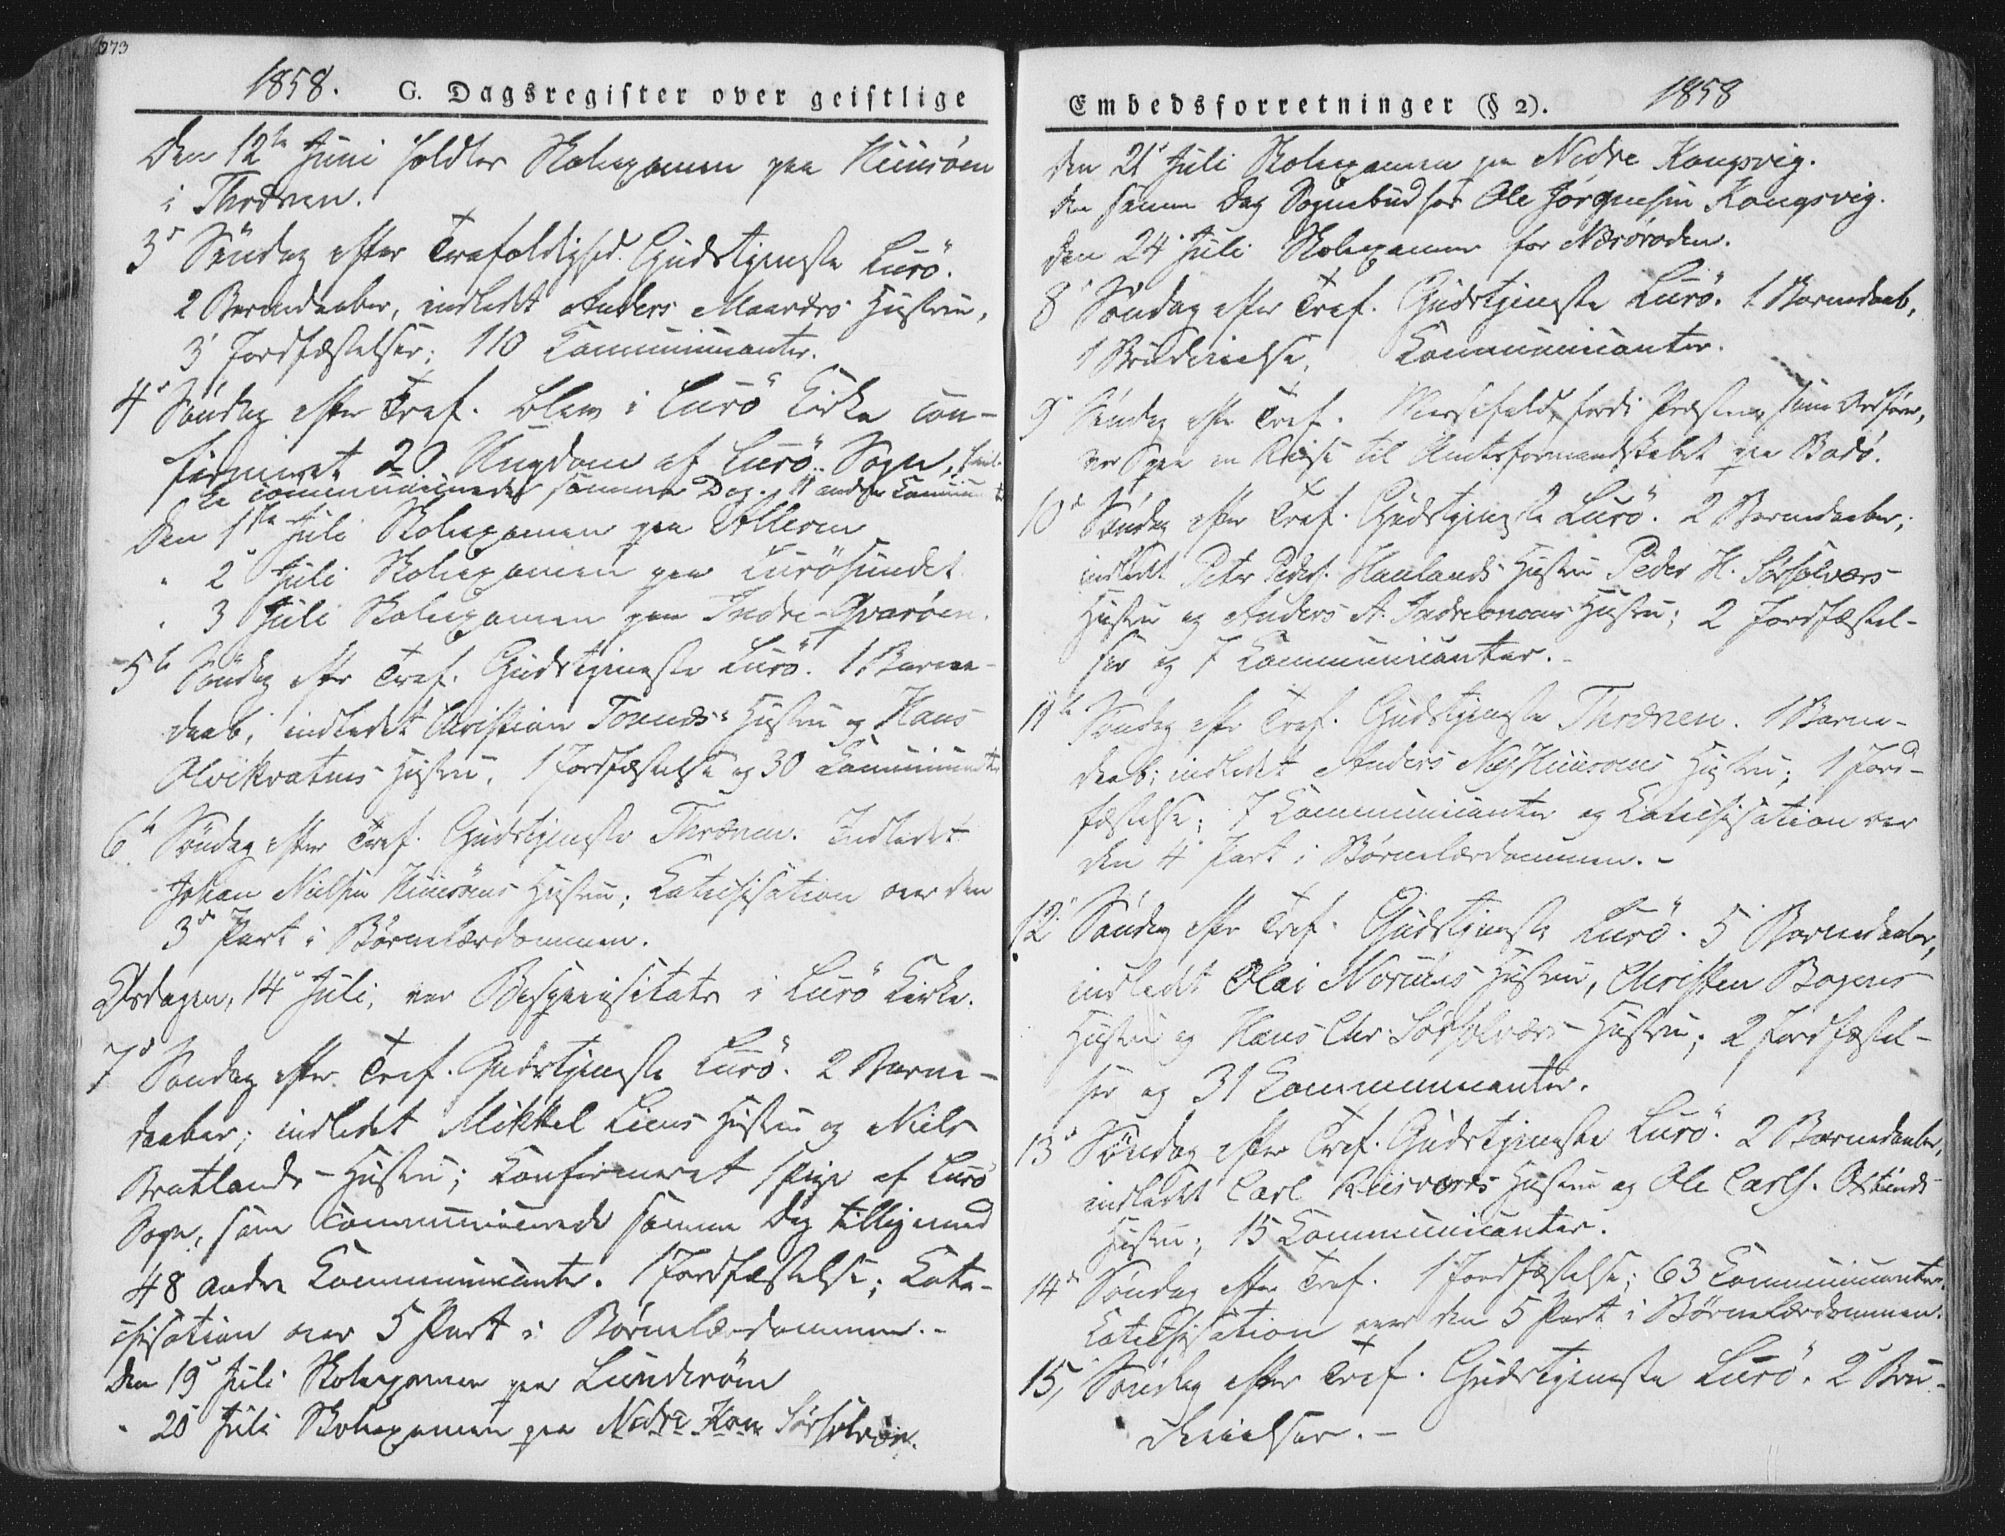 273
1858. G. Dagsregister over geistlige
Den 12te Juni holdtes Skoleexamen paa Huusöen
i Thrænen.
3d Söndag efter Trefoldighed. Gudstjeneste Lurö.
2 Barnedaaber, indledet Anders Maanæs Hustru,
3 Jordfæstelser; 110 Communicanter.
4d Söndag efter Tref. blev i Lurö Kirke con-
firmeret 20 Ungdom af Lurö Sogn,
communicerede samme Dag. 11 andre
Den 1ste Juli Skoleexamen paa Alderen
" 2 Juli Skoleexamen paa Lurösundet
" 3 Juli Skoleexamen paa Indre-Qvaröen.
5te Söndag efter Tref. Gudstjeneste Lurö. 1 Barne-
daab; indledet Christian Tonnæs's Hustru og Hans
Olvikvatnes Hustru, 1 Jordfæstelse og 30 Communicanter
6te Söndag efter Tref. Gudstjeneste Thrænen. Indledet
Johan Nielsen Huusöens Hustru; Catechisation over den
3d Part i Börnelærdommen.
Onsdagen, 14d Juli, var Bispevisitats i Lurö Kirke.
7d Söndag efter Tref. Gudstjeneste Lurö. 2 Barne-
daaber; indledet Mikkel Liens Hustru og Niels
Bratlands Hustru; Confirmeret 1 Pige af Lurö
Sogn, som communicerede samme Dag tilligemed
48 andre Communicanter. 1 Jordfæstelse; Cate-
chisation over 5 Part i Börnelærdommen.-
Den 19d Juli Skoleexamen paa Lunderöen
" 20 Juli Skoleexamen paa Nedre Kon Sörsolvær.
Embedsforretninger (§ 2). 1858
Den 21d Juli Skoleexamen paa Nedre Kongsvig.
Den samme Dag Sognebud hos Ole Jörgensen Kongsvig.
Den 24d Juli Skoleexamen for Næröroden.
8d Söndag efter Tref. Gudstjeneste Lurö. 1 Barnedaab,
1 Brudevielse, Communicanter.
9d Söndag efter Tref. Messefald, fordi Præsten, som Ordförer,
var paa en Reise til Amtsformandskabet paa Bodö.
10d Söndag efter Tref. Gudstjeneste Lurö. 2 Barnedaaber;
indledet Peter Peders. Haulands Hustru Peder H. Sörsolværs
Hustru og Anders A. Hustru; 2 Jordfæstel-
ser og 7 Communicanter.-
11te Söndag efter Tref. Gudstjeneste Thrænen. 1 Barne-
daab; indledet Anders Huusöens Hustru; 1 Jord-
fæstelse; 7 Communicanter og Catechisation over
den 4d Part i Börnelærdommen.-
12d Söndag efter Tref. Gudstjeneste Lurö. 5 Barnedaaber,
indledet Olai Hustru, Christen Bogens
Hustru og Hans Chr. Sörsolværs Hustru; 2 Jordfæstel-
ser og 31 Communicanter.
13d Söndag efter Tref. Gudstjeneste Lurö. 2 Barnedaaber,
indledet Carl Reisværs Hustru og Ole Carls.
Hustru; 15 Communicanter.
14de Söndag efter Tref. 1 Jordfæstelse; 63 Communicanter.
Catechisation over den 5 Part i Börnelærdommen.
15, Söndag efter Tref. Gudstjeneste Lurö. 2 Bru-
devielser.-